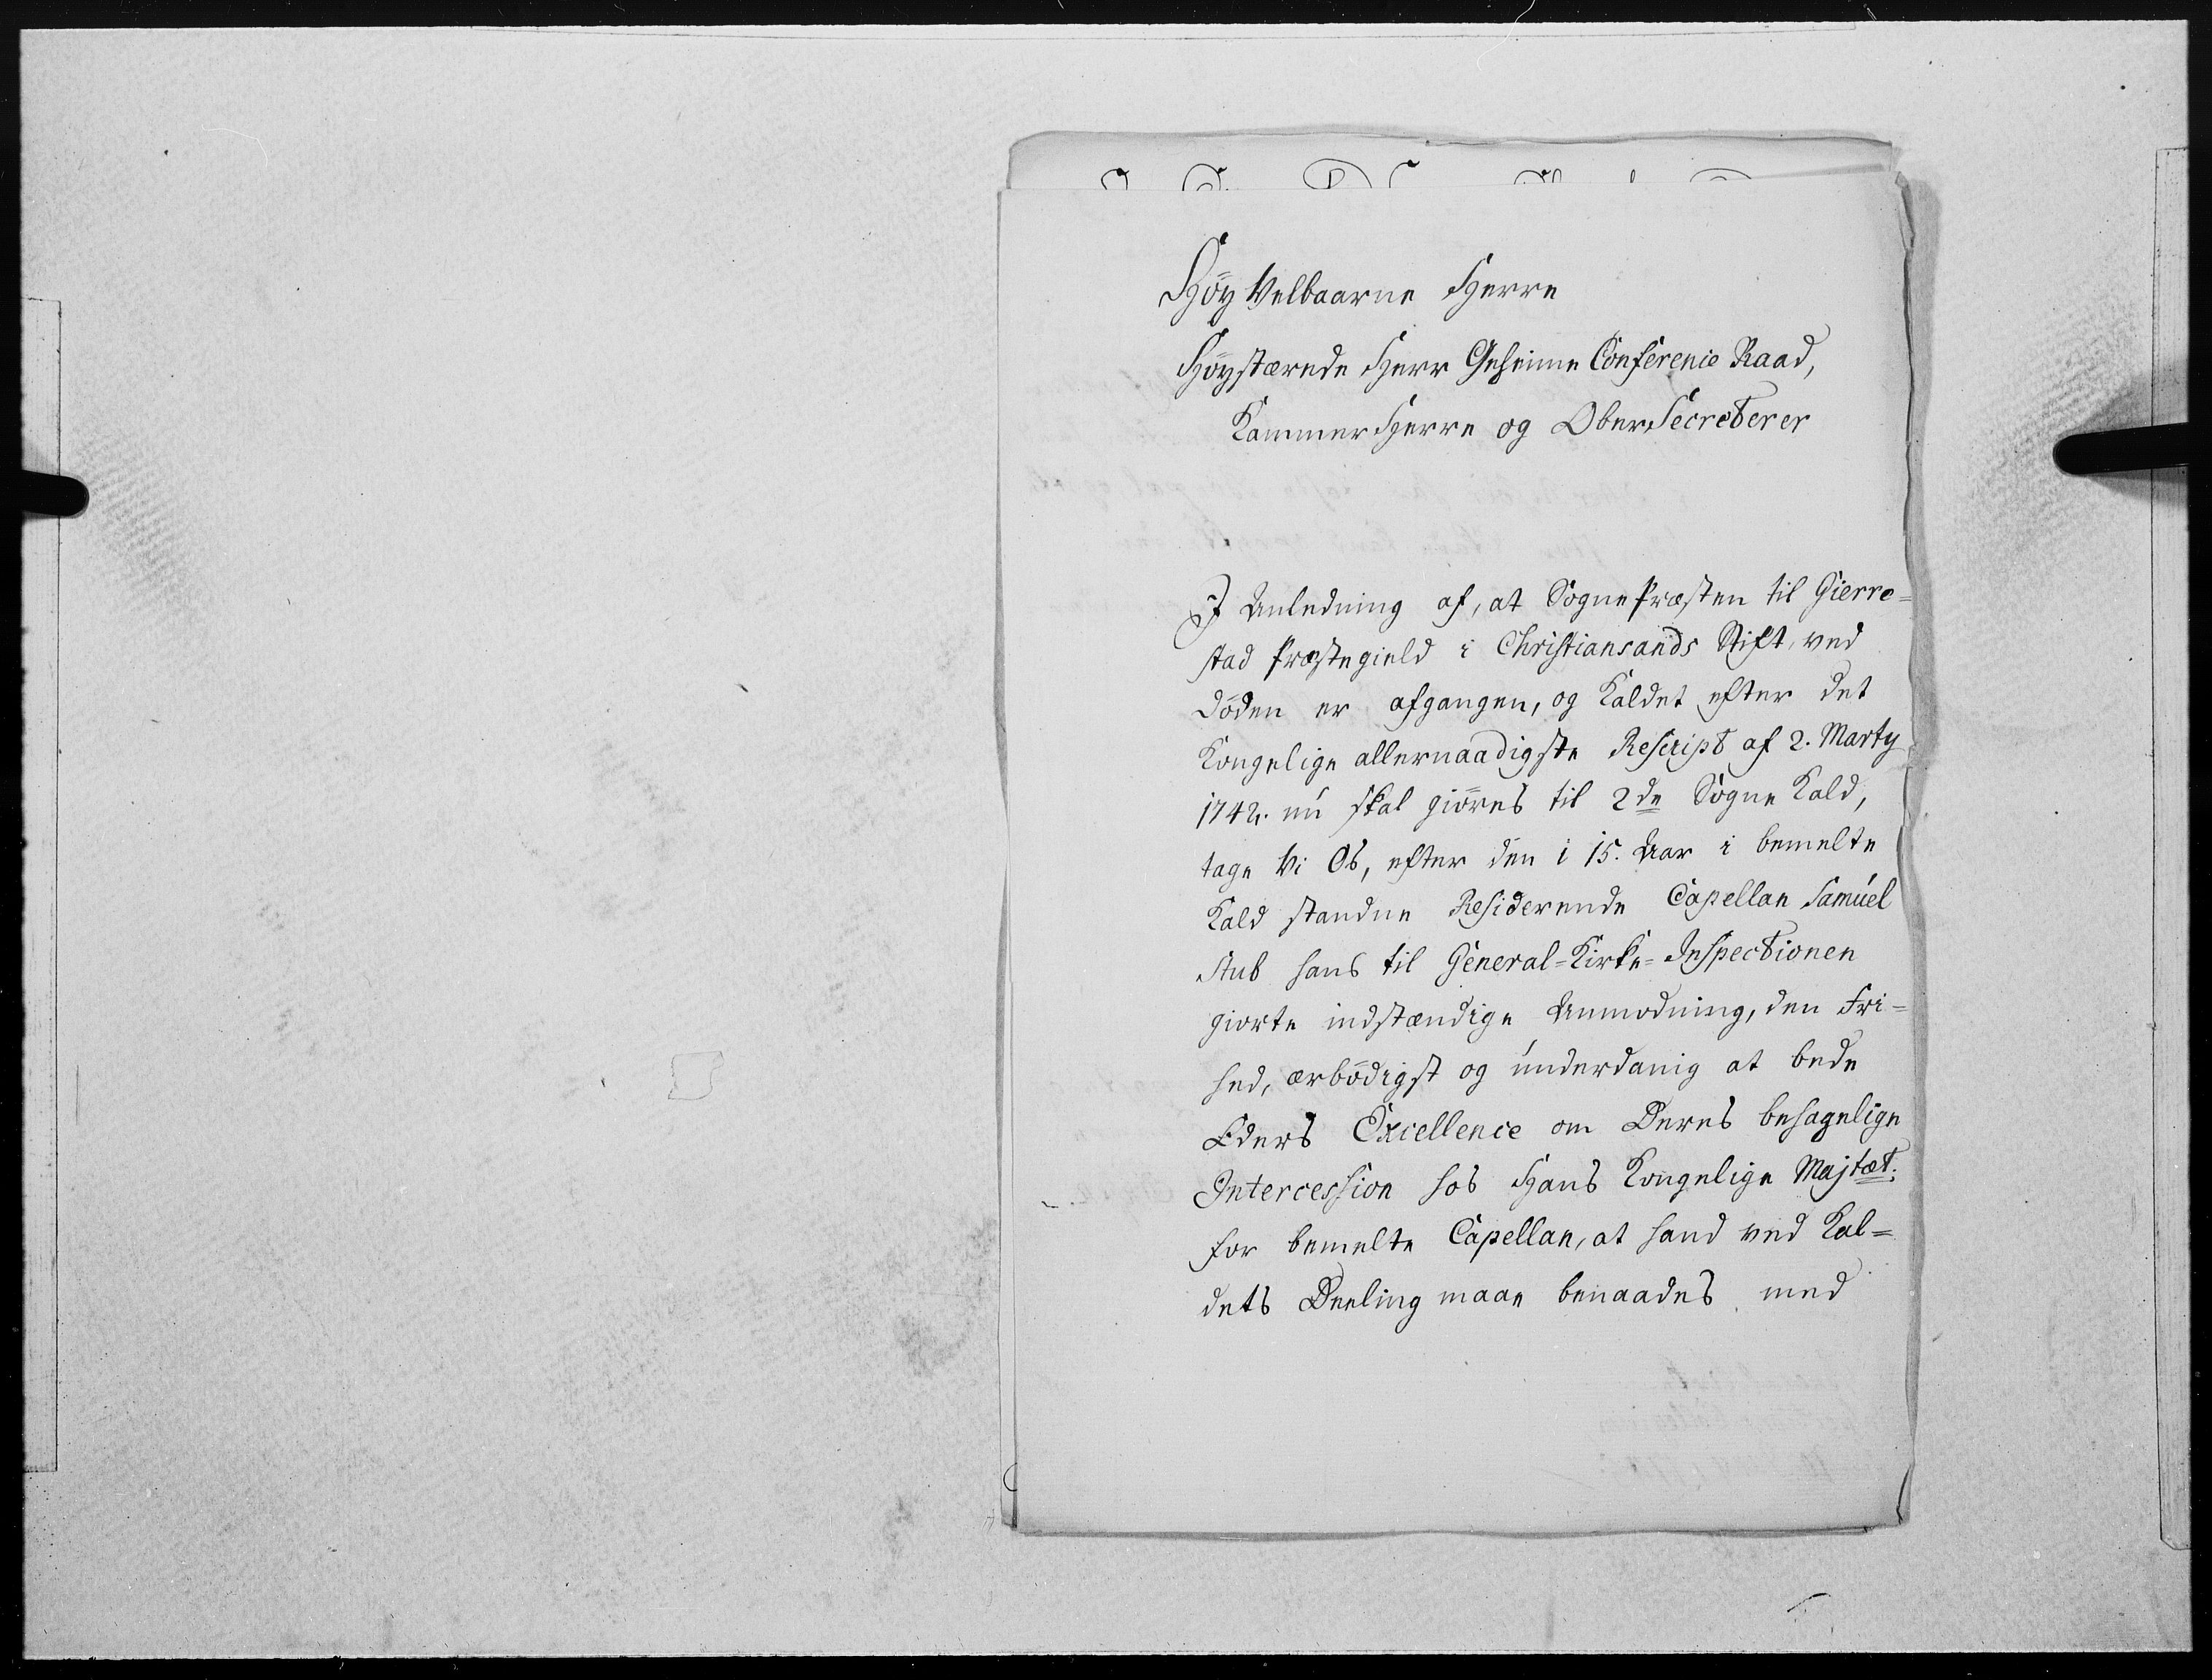 Høy Velbaarne Herre
Høystærede Herr Geheime Conference Raad,
Kammer Herre og OberSecreterer
I Anledning af, at SognePræsten til Gierre=
stad Præstegield i Christiansands Stift, ved
Døden er afgangen, og Kaldet efter det
Kongelige allernaadigste Rescript af 2. Marty
1742. nu skal giøres til 2de Sogne Kald,
tage Vi Os, efter den i 15. Aar i bemelte
Kald standne Residerende Capellan Samuel
Stub hans til General=Kirke=Inspectionen
giorte indstændige Anmodning, den Fri=
hed, ærbødigst og underdanig at bede
Eders Excellence om Deres behagelige
Intercession hos Hans Kongelige Majtæt.
for bemelte Capellan, at hand ved Kal=
dets Deeling maae benaades med